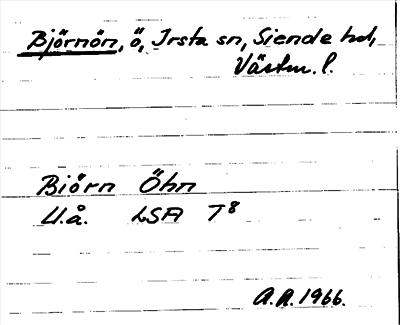 Björnön, ö, Irsta sn, Siende hd,
Västm. l.
Biörn Öhn
U.å. LSA T8
A.R. 1966.